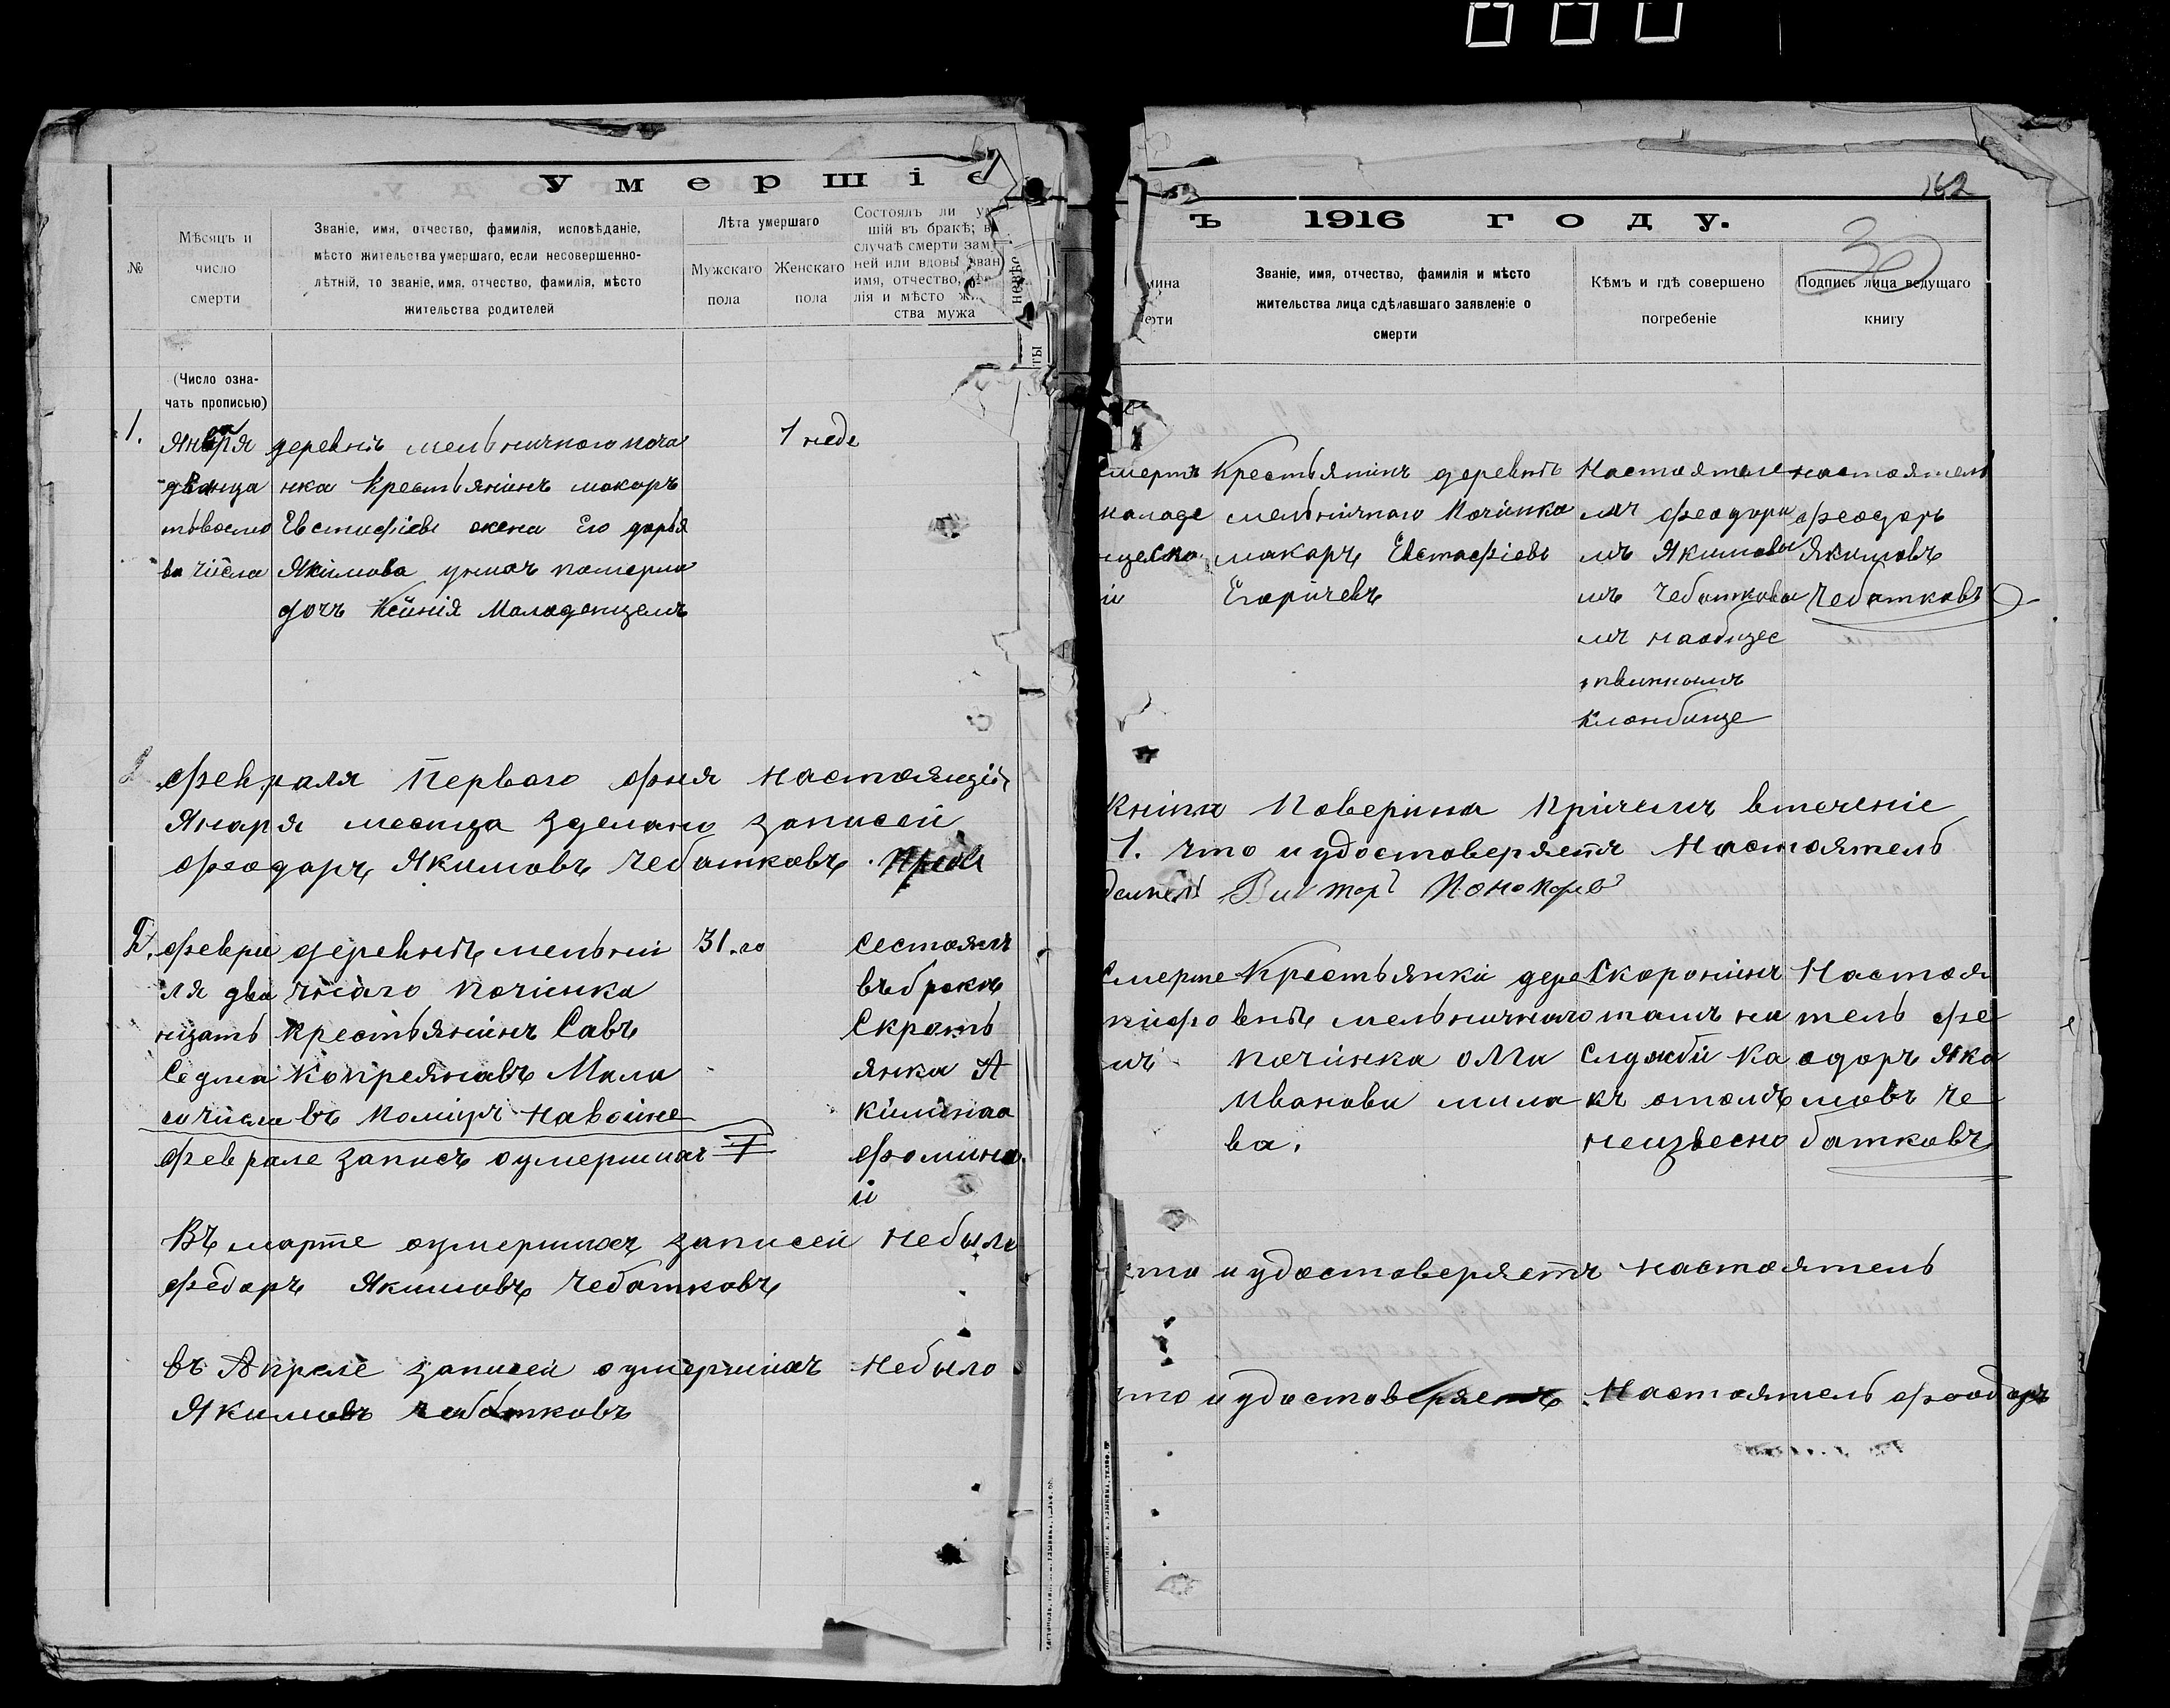 162
Умершіе
ъ 1916 году.
30
№
Мѣсяцъ и
число
смерти
Званіе, имя, отчество, фамилія, исповѣданіе,
мѣсто жительства умершаго, если несовершенно-
лѣтній, то званіе, имя, отчество, фамилія, мѣсто
жительства родителей
Лѣта умершаго
Мужскаго
пола
Женскаго
пола
Состоялъ ли
шій въ бракѣ;
случаѣ смерти зам
ней или вдовы
имя, отчество,
лія и мѣсто
ства мужа
мина
рти
Званіе, имя, отчество, фамилія и мѣсто
жительства лица сдѣлавшаго заявленіе о
смерти
Кѣмъ и гдѣ совершено
погребеніе
Подпись лица ведущаго
книгу
(Число озна-
чать прописью)
1.
Января
дванца
тьвосмо
ва числа
деревнѣ мельничного поча
нка Крестьянинъ макоръ
Евстифіевъ жена Его дарья
Якимова умоч померла
дочъ Ксинія Маладенцемъ
1 неде
смертъ
маладе
нцеско
й
Крестьянинъ деревнѣ
мельничнаго Починка
макоръ Евстафіевъ
Егоричевъ
Настоятеле
мъ феодоро
мъ Якимовы
мъ Чебатковы
мъ наобщес
твинномъ
кланбище
настоятель
феодоръ
Якимовъ
Чебатковъ
Февраля Первого дня настоящій
Января месеца зделано записей
феодоръ Якимовъ Чебатковъ.
Книга Поверина Причемъ втеченіе
1. что и удостоверяетъ Настоятель
2.
февра
ля два
нцать
Седма
го числа
деревнѣ мельни
чнаго починка
крестьянинъ Савъ
Копреяновъ Мала
въ Помиръ навойне
31.го
Сестоялъ
въбракѣ
Скресть
янка А
килинао
фомино
й
Смерте
тифо
мъ
Крестьянки дере
внѣ мельничнаго
починка олга
Иванова мала
ва.
Скоронинъ
тамъ на
Службй ка
къ отомъ
неизвесно
Настоя
тель фе
одоръ Яки
мовъ че
батковъ
феврале записъ оумершихъ 1
Въ марте оумершихъ записей небыло
Фёдоръ Якимовъ Чебатковъ
что и удостоверяетъ настоятель
въ Апреле записей оумершихъ небыло
Якимовъ чебатковъ
что и удостоверяетъ Настоятель феодоръ